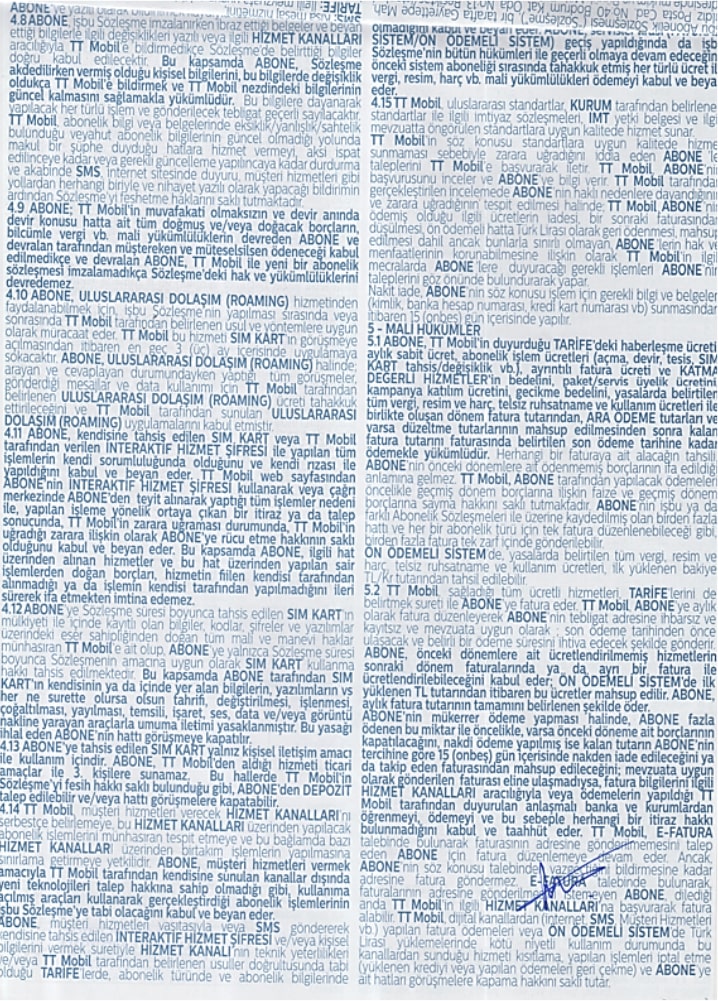 4.8 ABONE, işbu Sözleşme imzalanırken ibraz ettiği belgeler ve beyan
ettiği bilgilerle ilgili değişiklikleri yazılı veya ilgili HİZMET KANALLARI
aracılığıyla TT Mobil'e bildirmedikçe Sözleşme'de belirttiği bilgiler
doğru kabul edilecektir. Bu kapsamda ABONE, Sözleşme
akdedilirken vermiş olduğu kişisel bilgilerini, bu bilgilerde değişiklik
oldukça TT Mobil'e bildirmek ve TT Mobil nezdindeki bilgilerinin
güncel kalmasını sağlamakla yükümlüdür. Bu bilgilere dayanarak
yapılacak her türlü işlem ve gönderilecek tebligat geçerli sayılacaktır.
TT Mobil, abonelik bilgi veya belgelerinde eksiklik/yanlışlık/sahtelik
bulunduğu veyahut abonelik bilgilerinin güncel olmadığı yolunda
makul bir şüphe duyduğu hatlara hizmet vermeyi, aksi ispat
edilinceye kadar veya gerekli güncelleme yapılıncaya kadar durdurma
ve akabinde SMS, internet sitesinde duyuru, müşteri hizmetleri gibi
yollardan herhangi biriyle ve nihayet yazılı olarak yapacağı bildirimin
ardından Sözleşme'yi feshetme haklarını saklı tutmaktadır.
4.9 ABONE; TT Mobil'in muvafakati olmaksızın ve devir anında
devir konusu hatta ait tüm doğmuş ve/veya doğacak borçların,
bilcümle vergi vb. mali yükümlülüklerin devreden ABONE ve
devralan tarafından müştereken ve müteselsilsen ödeneceği kabul
edilmedikçe ve devralan ABONE, TT Mobil ile yeni bir abonelik
sözleşmesi imzalamadıkça Sözleşme'deki hak ve yükümlülüklerini
devredemez.
4.10 ABONE, ULUSLARARASI DOLAŞIM (ROAMING) hizmetinden
faydalanabilmek için, işbu Sözleşme'nin yapılması sırasında veya
sonrasında TT Mobil tarafından belirlenen usul ve yöntemlere uygun
olarak müracaat eder. TT Mobil bu hizmeti SIM KART'ın görüşmeye
açılmasından itibaren en geç 3 (üç) ay içerisinde uygulamaya
sokacaktır. ABONE, ULUSLARARASI DOLAŞIM (ROAMING) halinde;
arayan ve cevaplayan durumundayken yaptığı tüm görüşmeler,
gönderdiği mesajlar ve data kullanımı için TT Mobil tarafından
belirlenen ULUSLARARASI DOLAŞIM (ROAMING) ücreti tahakkuk
ettirileceğini ve TT Mobil tarafından sunulan ULUSLARARASI
DOLAŞIM (ROAMING) uygulamalarını kabul etmiştir.
4.11 ABONE, kendisine tahsis edilen SIM KART veya TT Mobil
tarafından verilen İNTERAKTİF HİZMET ŞİFRESİ ile yapılan tüm
işlemlerin kendi sorumluluğunda olduğunu ve kendi rızası ile
yapıldığını kabul ve beyan eder. TT Mobil web sayfasından
ABONE'nin İNTERAKTİF HİZMET ŞİFRESİ kullanarak veya çağrı
merkezinde ABONE'den teyit alınarak yaptığı tüm işlemler nedeni
ile, yapılan işleme yönelik ortaya çıkan bir itiraz ya da talep
sonucunda, TT Mobil'in zarara uğraması durumunda, TT Mobil'in
uğradığı zarara ilişkin olarak ABONE'ye rücu etme hakkının saklı
olduğunu kabul ve beyan eder. Bu kapsamda ABONE, ilgili hat
üzerinden alınan hizmetler ve bu hat üzerinden yapılan sair
işlemlerden doğan borçları, hizmetin fiilen kendisi tarafından
alınmadığı ya da işlemin kendisi tarafından yapılmadığını ileri
sürerek ifa etmekten imtina edemez.
4.12 ABONE'ye Sözleşme süresi boyunca tahsis edilen SIM KART'ın
mülkiyeti ile içinde kayıtlı olan bilgiler, kodlar, şifreler ve yazılımlar
üzerindeki eser sahipliğinden doğan tüm mali ve manevi haklar
münhasıran TT Mobil'e ait olup, ABONE'ye yalnızca Sözleşme süresi
boyunca Sözleşmenin amacına uygun olarak SIM KART'ı kullanma
hakkı tahsis edilmektedir. Bu kapsamda ABONE tarafından SIM
KART'ın kendisinin ya da içinde yer alan bilgilerin, yazılımların vs
her ne suretle olursa olsun tahrifi, değiştirilmesi, işlenmesi,
çoğaltılması, yayılması, temsili, işaret, ses, data ve/veya görüntü
nakline yarayan araçlarla umuma iletimi yasaklanmıştır. Bu yasağı
ihlal eden ABONE'nin hattı görüşmeye kapatılır.
4.13 ABONE'ye tahsis edilen SIM KART yalnız kişisel iletişim amacı
ile kullanım içindir. ABONE, TT Mobil'den aldığı hizmeti ticari
amaçlar ile 3. kişilere sunamaz. Bu hallerde TT Mobil'in
Sözleşme'yi fesih hakkı saklı bulunduğu gibi, ABONE'den DEPOZİT
talep edilebilir ve/veya hattı görüşmelere kapatabilir.
4.14 TT Mobil, müşteri hizmetleri verecek HİZMET KANALLARI'nı
serbestçe belirlemeye, bu HİZMET KANALLARI üzerinden yapılacak
abonelik işlemlerini münhasıran tespit etmeye ve bu bağlamda bazı
HİZMET KANALLARI üzerinden birtakım işlemlerin yapılmasına
sınırlama getirmeye yetkilidir. ABONE, müşteri hizmetleri vermek
amacıyla TT Mobil tarafından kendisine sunulan kanallar dışında
yeni teknolojileri talep hakkına sahip olmadığı gibi, kullanıma
açılmış araçları kullanarak gerçekleştirdiği abonelik işlemlerinin
işbu Sözleşme'ye tabi olacağını kabul ve beyan eder.
ABONE, müşteri hizmetleri vasıtasıyla veya SMS göndererek
kendisine tahsis edilen İNTERAKTİF HİZMET ŞİFRESİ ve/veya kişisel
bilgilerini vermek suretiyle HİZMET KANALI'nın teknik yeterlilikleri
ve/veya TT Mobil tarafından belirlenen usuller doğrultusunda tabi
olduğu TARİFE'lerde, abonelik türünde ve abonelik bilgilerinde
SİSTEM/ÖN ÖDEMELİ SİSTEM) geçiş yapıldığında da işb
Sözleşme'nin bütün hükümleri ile geçerli olmaya devam edeceğin
önceki sistem aboneliği sırasında tahakkuk etmiş her türlü ücret il
vergi, resim, harç vb. mali yükümlülükleri ödemeyi kabul ve beya
eder.
4.15 TT Mobil, uluslararası standartlar, KURUM tarafından belirlene
standartlar ile ilgili imtiyaz sözleşmeleri, IMT yetki belgesi ve ilgi
mevzuatta öngörülen standartlara uygun kalitede hizmet sunar.
TT Mobil'in söz konusu standartlara uygun kalitede hizme
sunmaması sebebiyle zarara uğradığını iddia eden ABONE 'le
taleplerini TT Mobil'e başvurarak iletir. TT Mobil, ABONE'nin
başvurusunu inceler ve ABONE'ye bilgi verir. TT Mobil tarafından
gerçekleştirilen incelemede ABONE'nin haklı nedenlere dayandığını
ve zarara uğradığının tespit edilmesi halinde; TT Mobil, ABONE'nin
ödemiş olduğu ilgili ücretlerin iadesi, bir sonraki faturasından
düşülmesi, ön ödemeli hatta Türk Lirası olarak geri ödenmesi, mahsup
edilmesi dahil ancak bunlarla sınırlı olmayan, ABONE'lerin hak ve
menfaatlerinin korunabilmesine ilişkin olarak TT Mobil'in ilgil
mecralarda ABONE'lere duyuracağı gerekli işlemleri ABONE'nin
taleplerini göz önünde bulundurarak yapar.
Nakit iade, ABONE'nin söz konusu işlem için gerekli bilgi ve belgeler
(kimlik, banka hesap numarası, kredi kart numarası vb) sunmasından
itibaren 15 (onbeş) gün içerisinde yapılır.
5 - MALİ HÜKÜMLER
5.1 ABONE, TT Mobil'in duyurduğu TARİFE'deki haberleşme ücreti
aylık sabit ücret, abonelik işlem ücretleri (açma, devir, tesis, SIM
KART tahsis/değişiklik vb.), ayrıntılı fatura ücreti ve KATMA
DEĞERLİ HİZMETLER'in bedelini, paket/servis üyelik ücretini
kampanya katılım ücretini, gecikme bedelini, yasalarda belirtilen
tüm vergi, resim ve harç, telsiz ruhsatname ve kullanım ücretleri ile
birlikte oluşan dönem fatura tutarından, ARA ÖDEME tutarları ve
varsa düzeltme tutarlarının mahsup edilmesinden sonra kalan
fatura tutarını faturasında belirtilen son ödeme tarihine kadar
ödemekle yükümlüdür. Herhangi bir faturaya ait alacağın tahsili
ABONE'nin önceki dönemlere ait ödenmemiş borçlarının ifa edildiği
anlamına gelmez. TT Mobil, ABONE tarafından yapılacak ödemeleri
öncelikle geçmiş dönem borçlarına ilişkin faize ve geçmiş dönem
borçlarına sayma hakkını saklı tutmaktadır. ABONE'nin işbu ya da
farklı Abonelik Sözleşmeleri ile üzerine kaydedilmiş olan birden fazla
hattı ve her bir abonelik türü için tek fatura düzenlenebileceği gibi,
birden fazla fatura tek zarf içinde gönderilebilir.
ÖN ÖDEMELİ SİSTEM'de, yasalarda belirtilen tüm vergi, resim ve
harç, telsiz ruhsatname ve kullanım ücretleri, ilk yüklenen bakiye
TL/Kr tutarından tahsil edilebilir.
5.2 TT Mobil, sağladığı tüm ücretli hizmetleri, TARİFE'lerini de
belirtmek sureti ile ABONE'ye fatura eder. TT Mobil, ABONE'ye aylık
olarak faturu düzenleyerek ABONE'nin tebligat adresine ihbarsız ve
kayıtsız ve mevzuata uygun olarak ; son ödeme tarihinden önce
ulaşacak ve belirli bir ödeme süresini ihtiva edecek şekilde gönderir.
ABONE, önceki dönemlere ait ücretlendirilmemiş hizmetlerin
sonraki dönem faturalarında ya da ayrı bir fatura ile
ücretlendirilebileceğini kabul eder; ÖN ÖDEMELİ SİSTEM'de ilk
yüklenen TL tutarından itibaren bu ücretler mahsup edilir. ABONE,
aylık fatura tutarının tamamını belirlenen şekilde öder.
ABONE'nin mükerrer ödeme yapması halinde, ABONE fazla
ödenen bu miktar ile öncelikle, varsa önceki döneme ait borçlarının
kapatılacağını, nakdi ödeme yapılmış ise kalan tutarın ABONE'nin
tercihine göre 15 (onbeş) gün içerisinde nakden iade edileceğini ya
da takip eden faturasından mahsup edileceğini; mevzuata uygun
olarak gönderilen faturası eline ulaşmadıysa, fatura bilgilerini ilgili
HİZMET KANALLARI aracılığıyla veya ödemelerin yapıldığı TT
Mobil tarafından duyurulan anlaşmalı banka ve kurumlardan
öğrenmeyi, ödemeyi ve bu sebeple herhangi bir itiraz hakkı
bulunmadığını kabul ve taahhüt eder. TT Mobil, E-FATURA
talebinde bulunarak faturasının adresine gönderilmemesini talep
eden ABONE için fatura düzenlemeye devam eder. Ancak,
ABONE'nin söz konusu talebinde bildirmesine kadar
adresine fatura göndermez. E-FATURA talebinde bulunarak,
faturalarının adresine gönderilmesini istemeyen ABONE dilediği
anda TT Mobil'in ilgili HİZMET KANALLARI'na başvurarak fatura
alabilir. TT Mobil, dijital kanallardan (internet, SMS, Müşteri Hizmetleri
vb.) yapılan fatura ödemeleri veya ÖN ÖDEMELİ SİSTEM'de Türk
Lirası yüklemelerinde kötü niyetli kullanım durumunda bu
kanallardan sunduğu hizmeti kısıtlama, yapılan işlemleri iptal etme
(yüklenen krediyi veya yapılan ödemeleri geri çekme) ve ABONE'ye
ait hatları görüşmelere kapama hakkını saklı tutar.